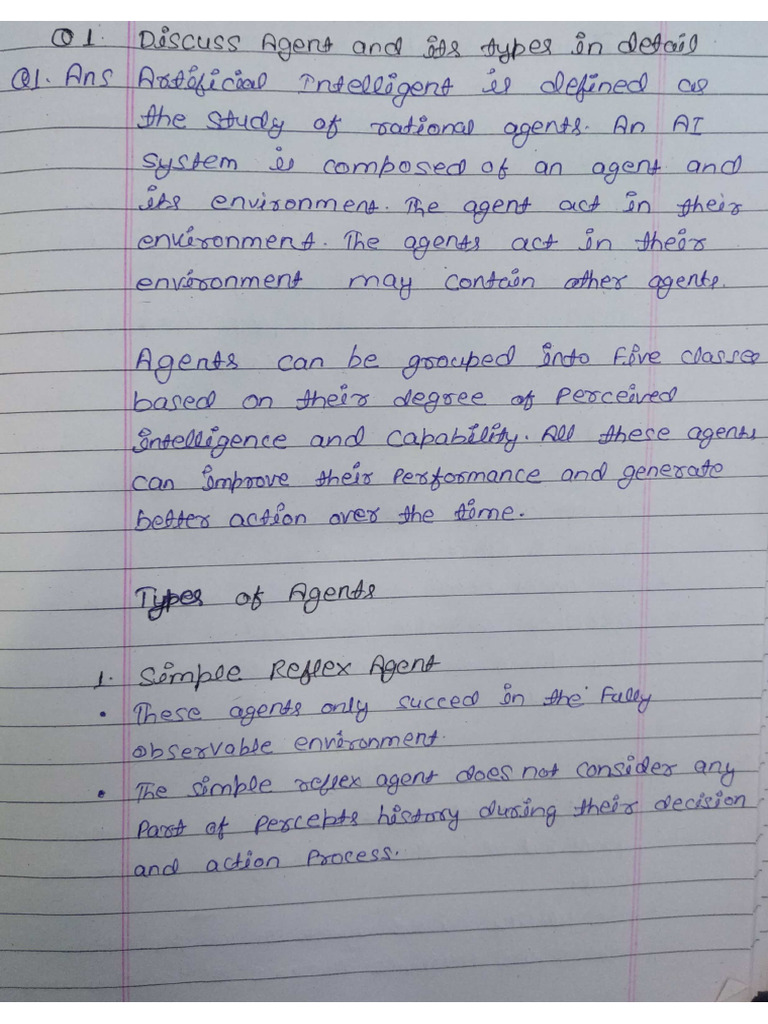 Q1. Discuss Agent and its types in detail
Q1. Ans Artificial Intelligent is defined as
the study of rational agents. An AI
system is composed of an agent and
its environment. The agent act in their
environment. The agents act in their
environment may contain other agents.
Agents can be grouped into five classes
based on their degree of perceived
intelligence and capability. All these agents
can improve their performance and generate
better action over the time.
Types of Agents
1. Simple Reflex Agent
• These agents only succed in the fully
observable environment.
• The simple reflex agent does not consider any
part of percepts history during their decision
and action process.